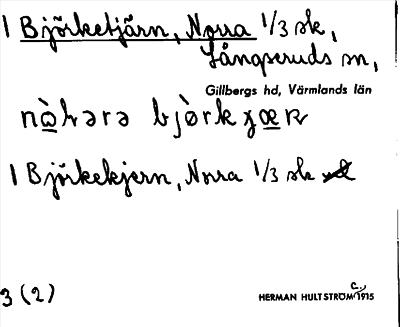 1 Björketjärn, Norra 1/3 sk,
Långseruds sn,
Gillbergs hd, Värmlands län
nò̱rəra bjòrkɟæ̱r
1 Björkekjern, Norra 1/3 sk
3 (2)
HERMAN HULTSTRÖM C. 1915